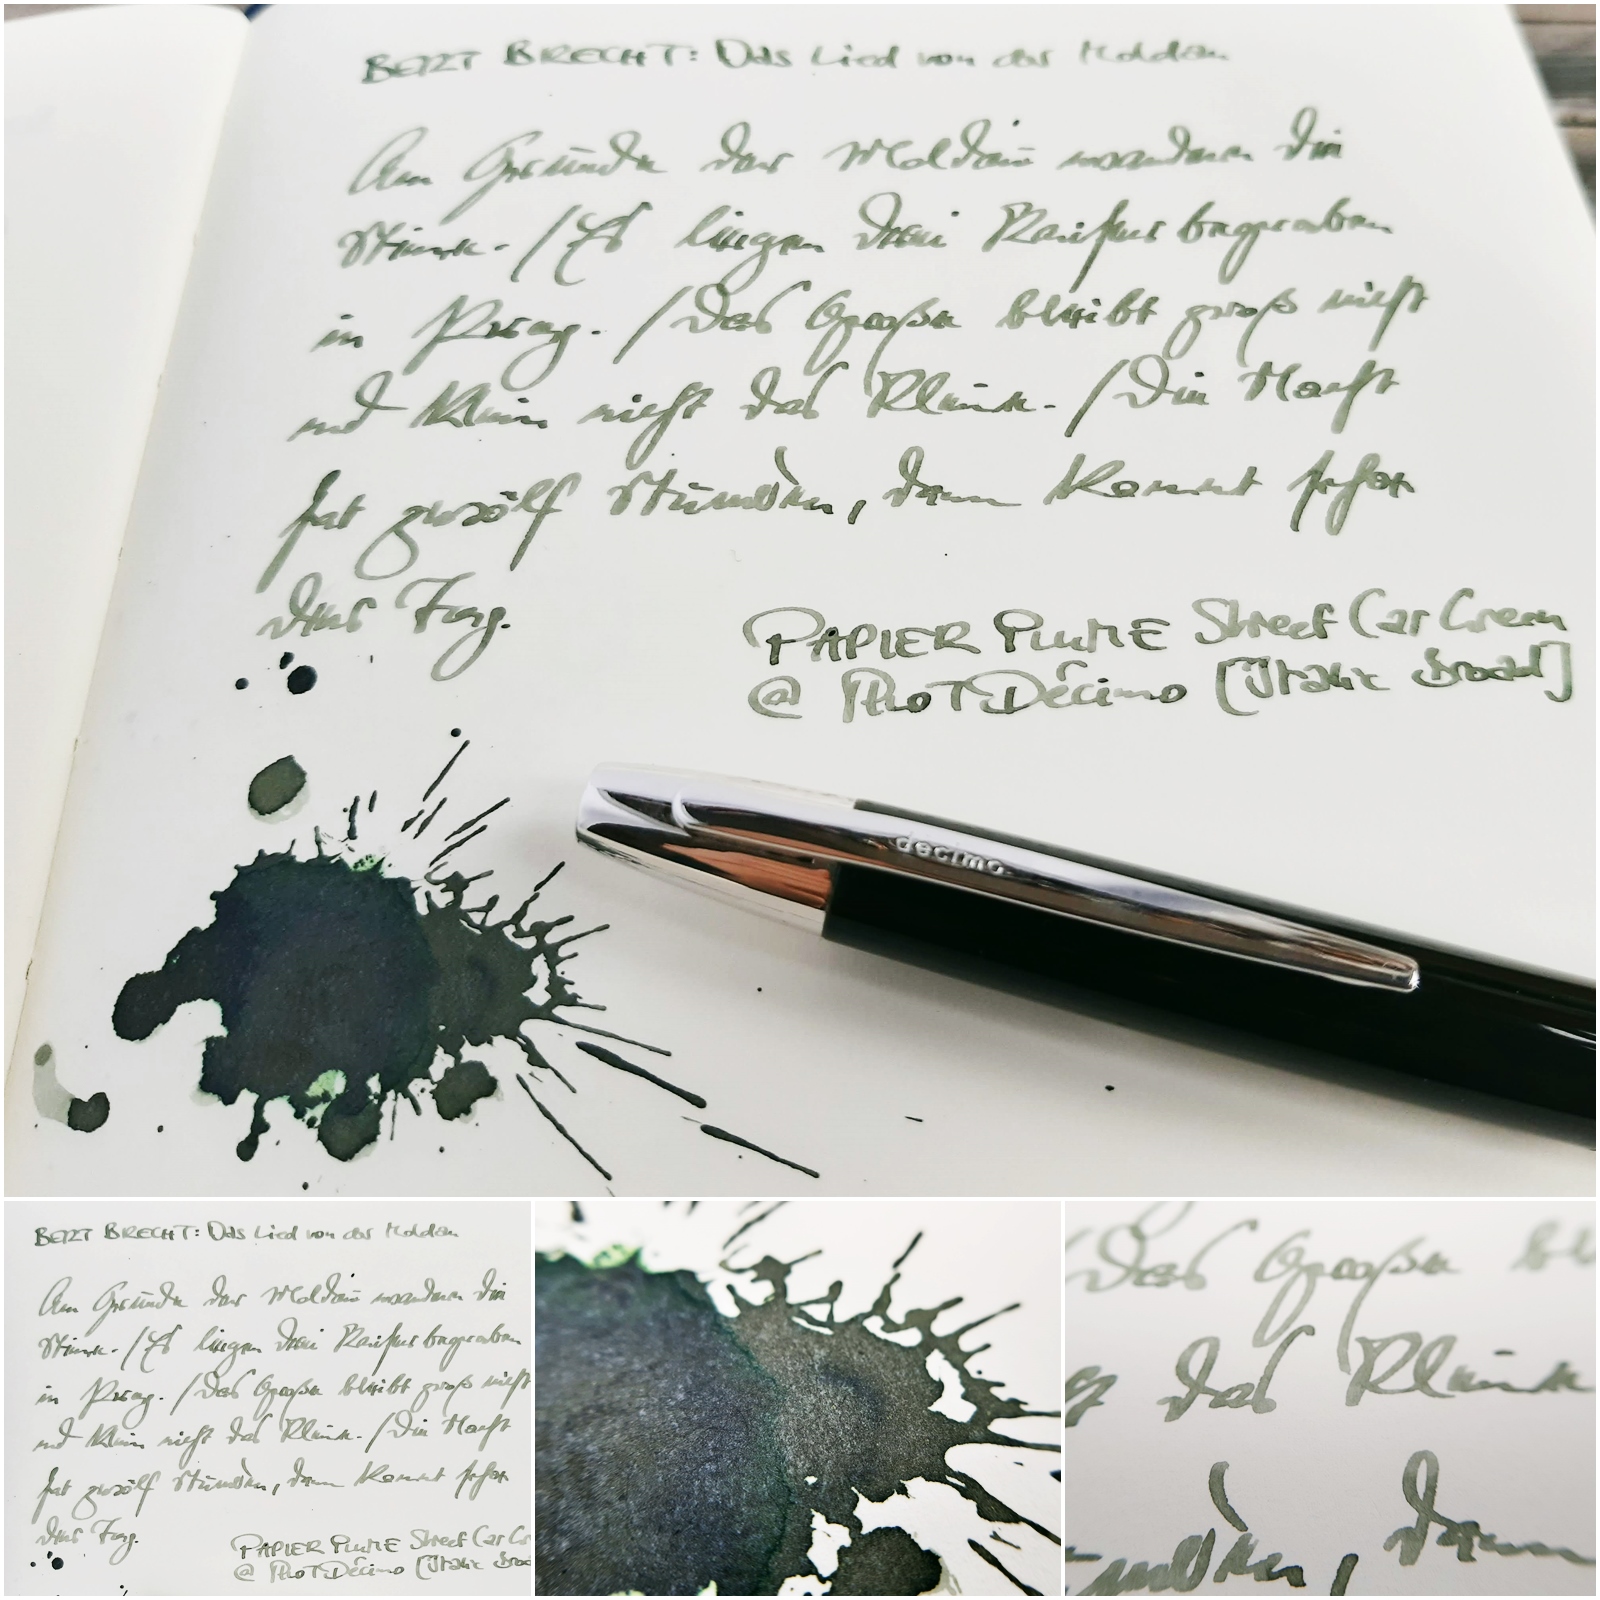 BERT BRECHT: Das Lied von der Moldau
Am Grunde der Moldau wandern die
Steine. / Es liegen drei Kaiser begraben
in Prag. / Das Große bleibt groß nicht
und klein nicht das Kleine. / Die Nacht
hat zwölf Stunden, dann kommt schon
der Tag.
PAPIER PLUME Street Car Green
@ PILOT Décimo [Italic Broad]
decimo
BERT BRECHT: Das Lied von der Moldau
Am Grunde der Moldau wandern die
Steine. / Es liegen drei Kaiser begraben
in Prag. / Das Große bleibt groß nicht
und klein nicht das Kleine. / Die Nacht
hat zwölf Stunden, dann kommt schon
der Tag.
PAPIER PLUME Street Car Gr
@ PILOT Décimo [Italic Broa
Das Große bl
das Kleine
dann